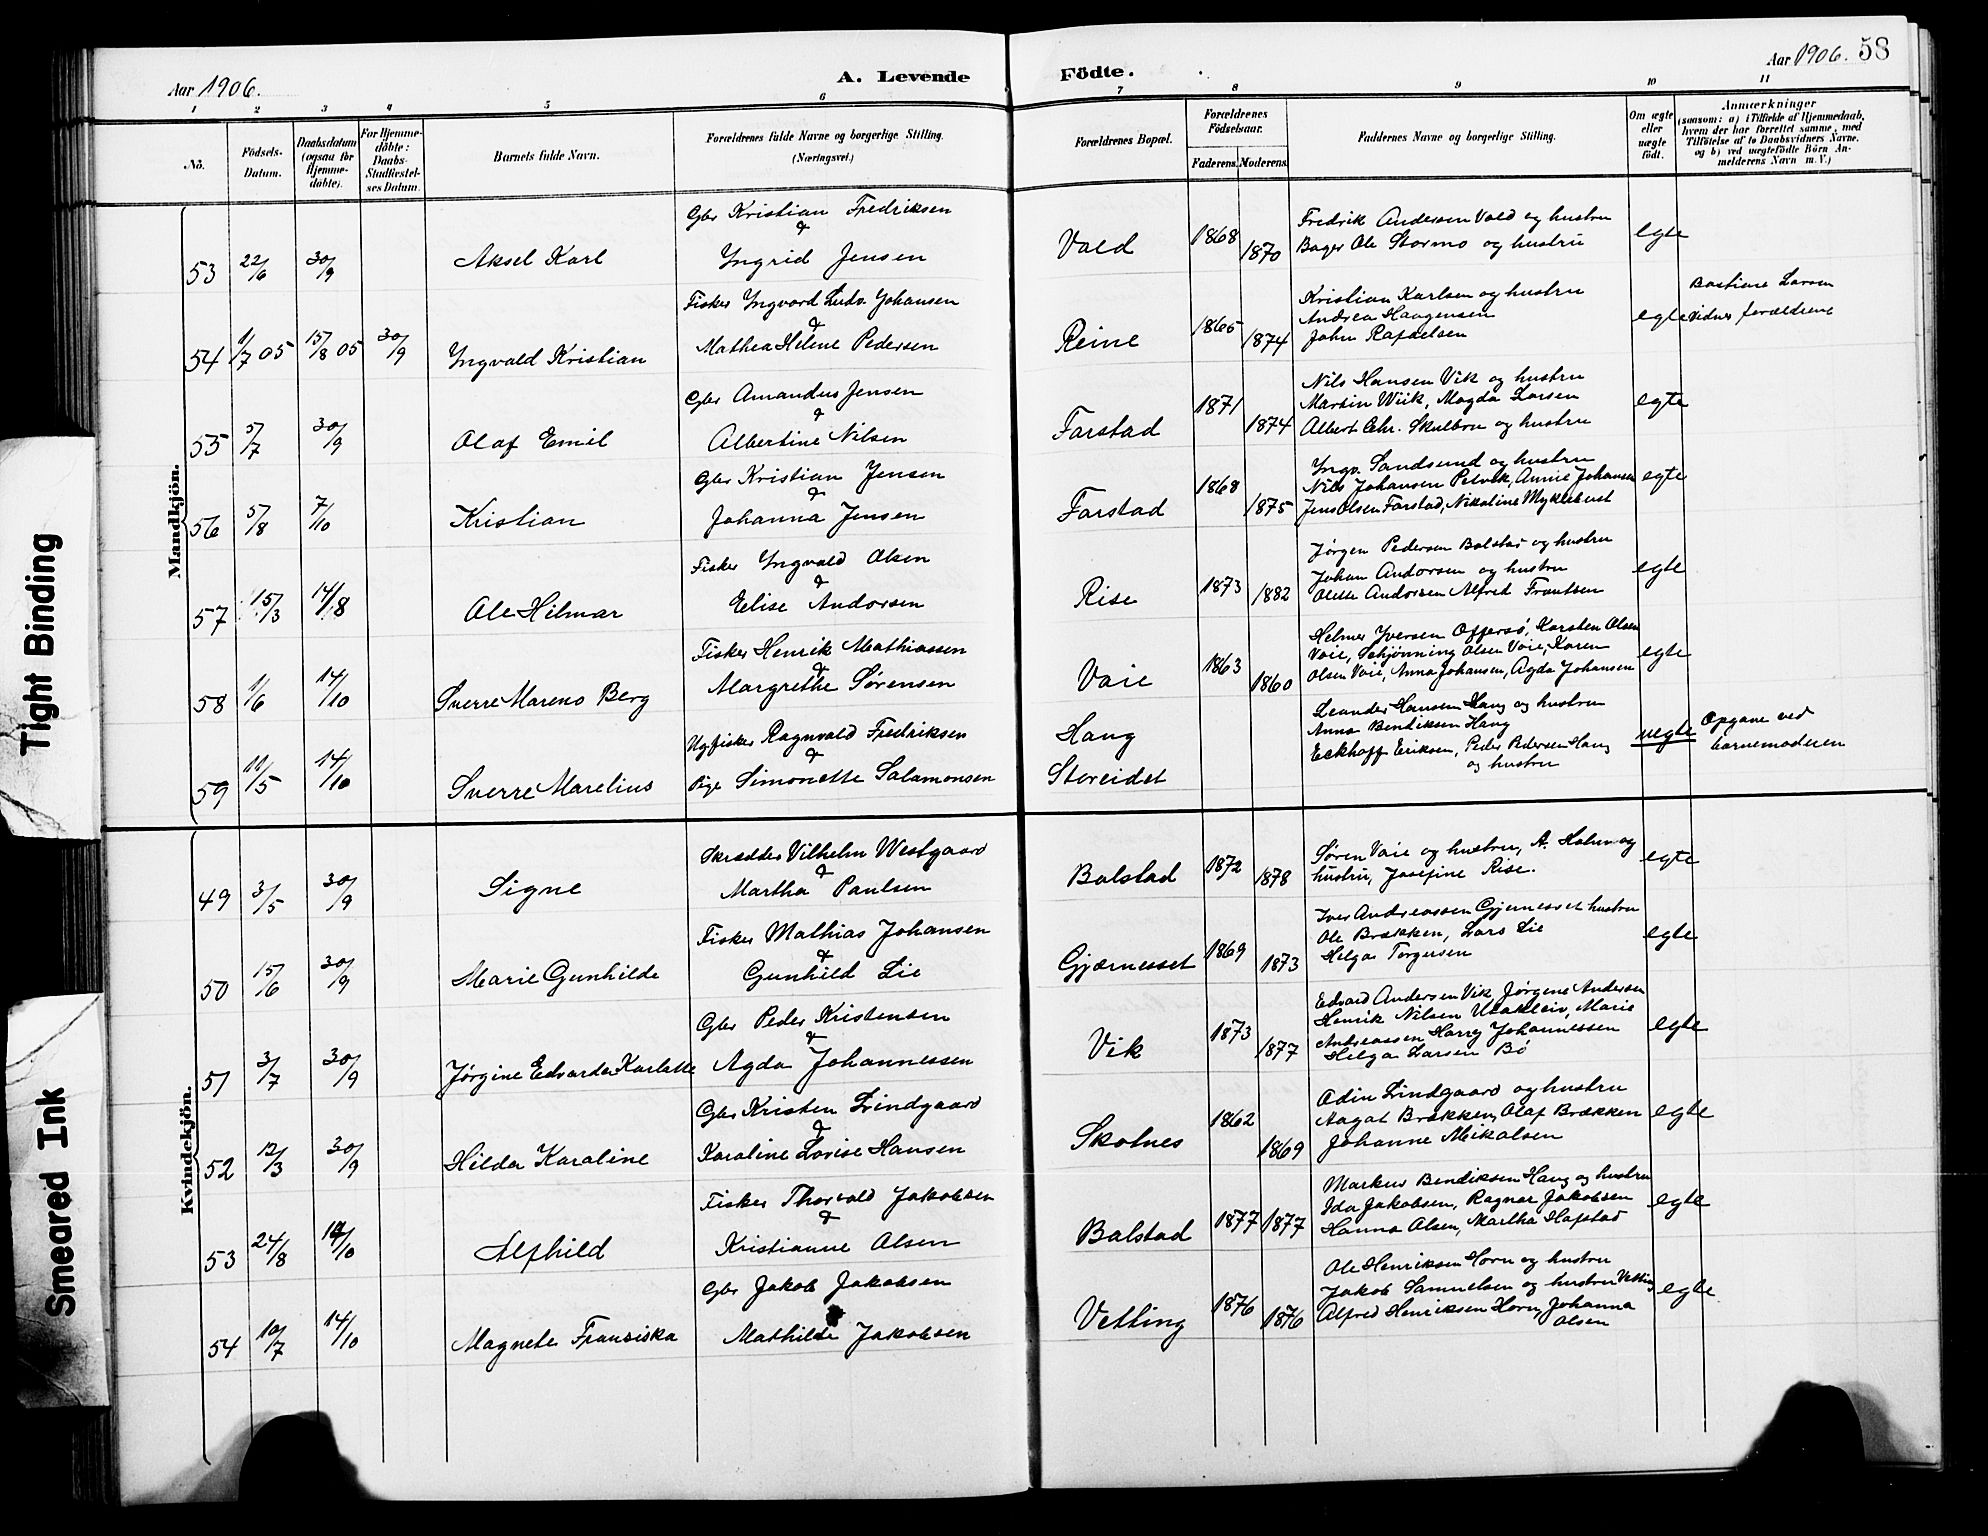 Aar 1906.
A. Levende
Födte.
Aar 1906. 58
1 2 3 4 5 6 7 8 9 10 11
Nö.
Födsels-Datum.
Daabsdatum (ogsaa för Hjemmedöbte).
For Hjemmedöbte: Daabs-Stadfæstelses Datum.
Barnets fulde Navn.
Forældrenes fulde Navne og borgerlige Stilling. (Næringsvei.)
Forældrenes Bopæl.
Forældrenes Födselsaar.
Faderens. Moderens.
Faddernes Navne og borgerlige Stilling.
Om ægte eller uægte födt.
Anmærkninger (saasom: a) i Tilfælde af Hjemmedaab, hvem der har forrettet samme, med Tilföielse af to Daabsvidners Navne. og b) ved uægtefödte Börn Anmelderens Navn m. V.)
Mandkjön.
Gbr Kristian Fredriksen
&
53 22/6 30/9 Aksel Karl Yngrid Jensen
Vold 1868 1870
Fredrik Andersen Vold og hustru
Bager Ole Stormo og hustru
egte
Fisker Yngvard Ludv. Johansen
&
54 1/7 05 15/8 05 30/9 Yngvald Kristian Mathea Helene Pedersen
Reine 1865 1874
Kristian Karlsen og hustru
Andrea Haugensen
John Rafaelsen
egte
Bastiane Larsen
Vidner forældrene
Gbr Amandus Jensen
&
55 5/7 30/9 Olaf Emil Albertine Nilsen
Farstad 1871 1874
Nils Hansen Vik og hustru
Martin Wiik, Magda Larsen
Albert Chr. Skulbru og hustru
egte
Gbr Kristian Jensen
&
56 5/8 7/10 Kristian Johanna Jensen
Farstad 1868 1875
Yngv. Sandsund og hustru
Nils Johansen Petvik, Annie Johansen
Jens Olsen Farstad, Nikoline Myklebust
egte
Fisker Yngvald Olsen
&
57 15/3 14/8 Ole Hilmar Elise Andorsen
Rise 1873 1882
Jørgen Pedersen Balstad og hustru
Johan Andorsen og hustru
Olette Andorsen Alfred Frantsen
egte
Fisker Henrik Mathiassen
&
58 1/6 14/10 Sverre Mareno Berg Margrethe Sørensen
Vaie 1863 1860
Helmer Yversen Offersø, Karsten Olsen
Vaie, Schjønning Olsen Vaie, Karen
Olsen Vaie, Anna Johansen, Agda Johansen
egte
Ugfisker Ragnvald Fredriksen
&
59 11/5 14/10 Sverre Marelius Pige Simonette Salamonsen
Haug
Storeidet
Leander Hansen Haug og hustru
Anna Bendiksen Haug
Eckhoff Eriksen, Peder Pedersen Haug
og hustru
uegte
Opgave ved
barnemoderen
Kvindekjön.
Skrædder Vilhelm Westgaard
&
49 3/5 30/9 Signe Martha Paulsen
Balstad 1872 1878
Søren Vaie og hustru, A. Holm og
hustru, Josefine Rise.
egte
Fisker Mathias Johansen
&
50 15/6 30/9 Marie Gunhilde Gunhild Lie
Gjærnesset 1869 1873
Iver Andreassen Gjernesset hustru
Ole Brækken, Lars Lie
Helga Torgersen
egte
Gbr Peder Kristensen
&
51 3/7 30/9 Jørgine Edvarda Karlotte Agda Johannessen
Vik 1873 1877
Edvard Andersen Vik, Jørgine Andersen
Henrik Nilsen Utakleiv, Marie
Andreassen Harry Johannessen
Helga Larsen Bø
egte
Gbr Kristen Lindgaard
&
52 12/3 30/9 Hilda Karoline Karoline Lovise Hansen
Skotnes 1862 1869
Odin Lindgaard og hustru
Aagat Brækken, Olaf Brækken
Johanne Mikalsen
egte
Fisker Thorvald Jakobsen
&
53 24/8 14/10 Alfhild Kristianne Olsen
Balstad 1877 1877
Markus Bendiksen Haug og hustru
Ida Jakobsen, Ragnar Jakobsen
Hanna Olsen, Martha Hafstad
egte
Gbr Jakob Jakobsen
54 10/7 14/10 Magnete Fransiska Mathilde Jakobsen
Vetting 1876 1876
Ole Henriksen Horn og hustru
Jakob Samuelsen og hustru Vetting
Alfred Henriksen Horn, Johanna
Olsen
egte
Tight Binding
Smeared Ink